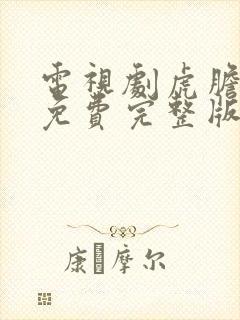 電視劇虎膽
免費完整版
康 摩尔